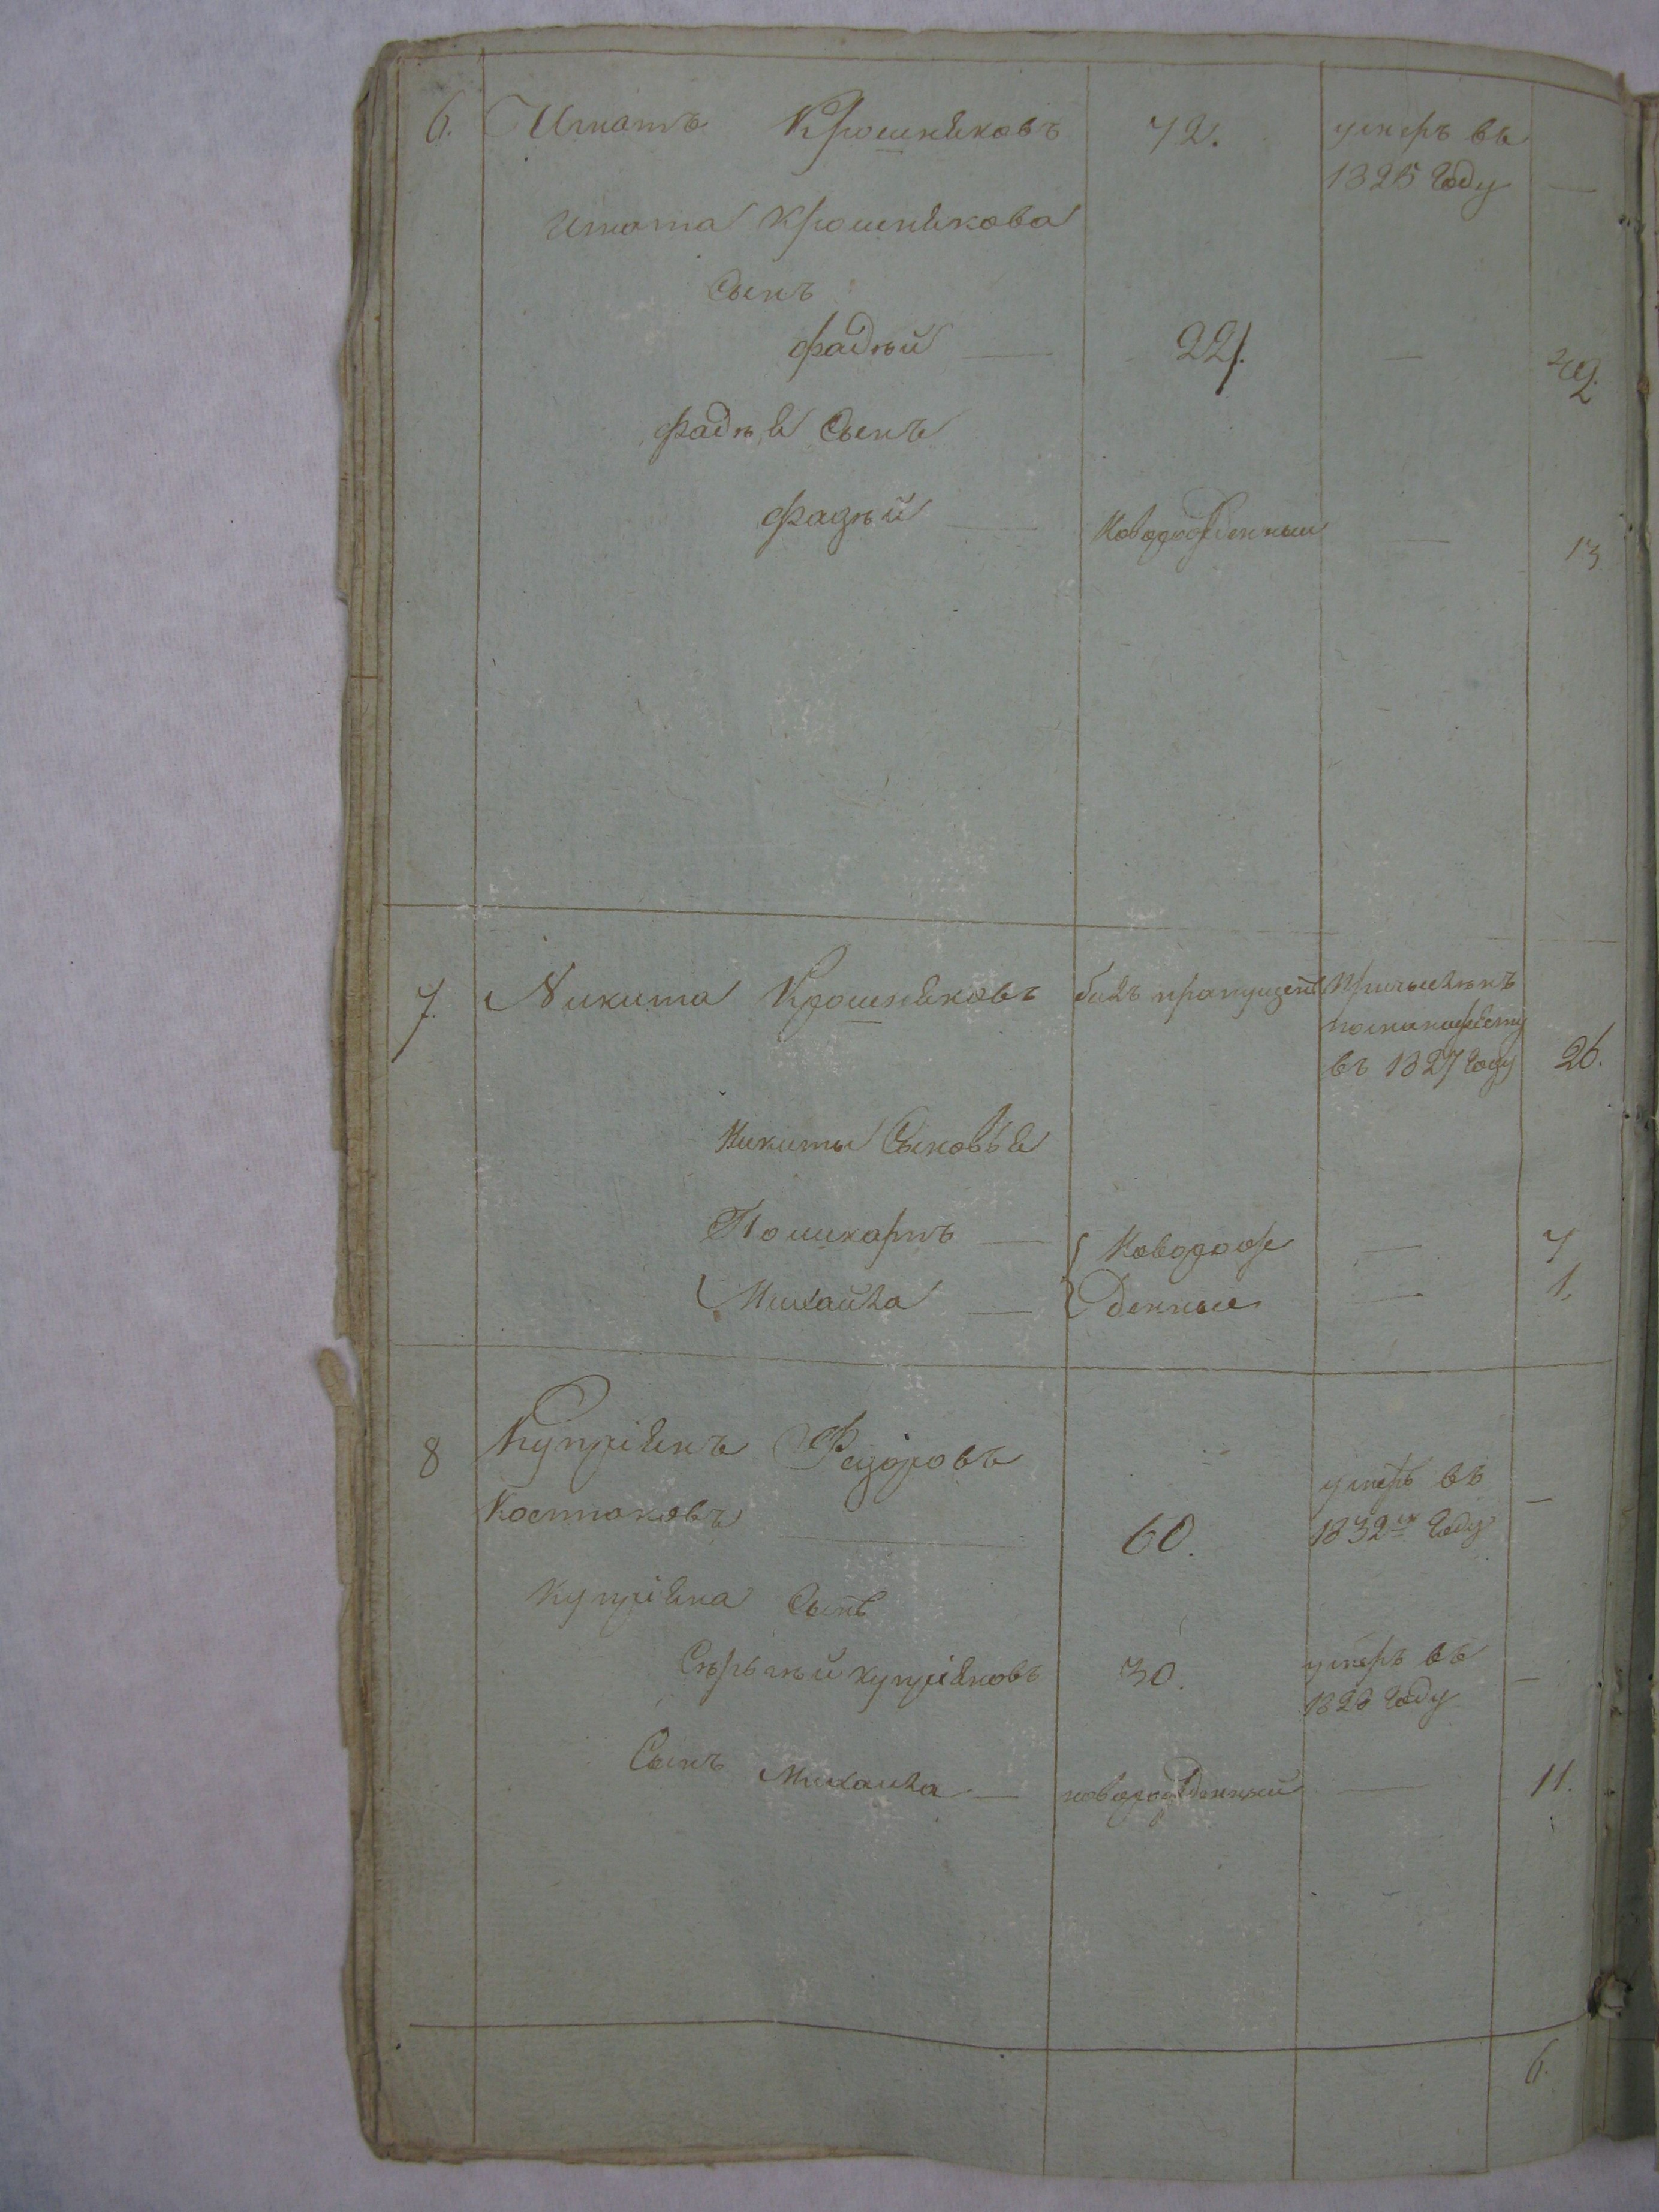 6. Игнатъ Крошняковъ 72. умеръ въ
1825 году —
Игната Крошнякова
Сынъ
Фадѣй — 24. — 42.
Фадѣя Сынъ
Фадѣй — Новорожденный — 13
7. Никита Крошняковъ былъ пропущенъ Причисленъ
по манифесту
въ 1827 году 26.
Никиты Сыновья
— Новорож — 7
Михаила — денные — 1.
8 Купріянъ Федоровъ
Костаковъ — 60. умеръ въ
1832м году —
Купріяна Сынъ
Сѣргѣй Купріяновъ 30. умеръ въ
1826 году —
Сынъ Михаила — новорожденный — 11.
6.